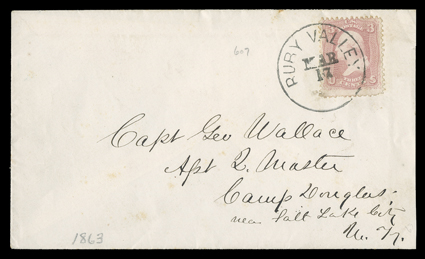 607
RUBY VALLEY
MAR
17
3
Capt Geo Wallace
Apt Q. Master
Camp Douglas.
near Salt Lake City
U. T.
1863